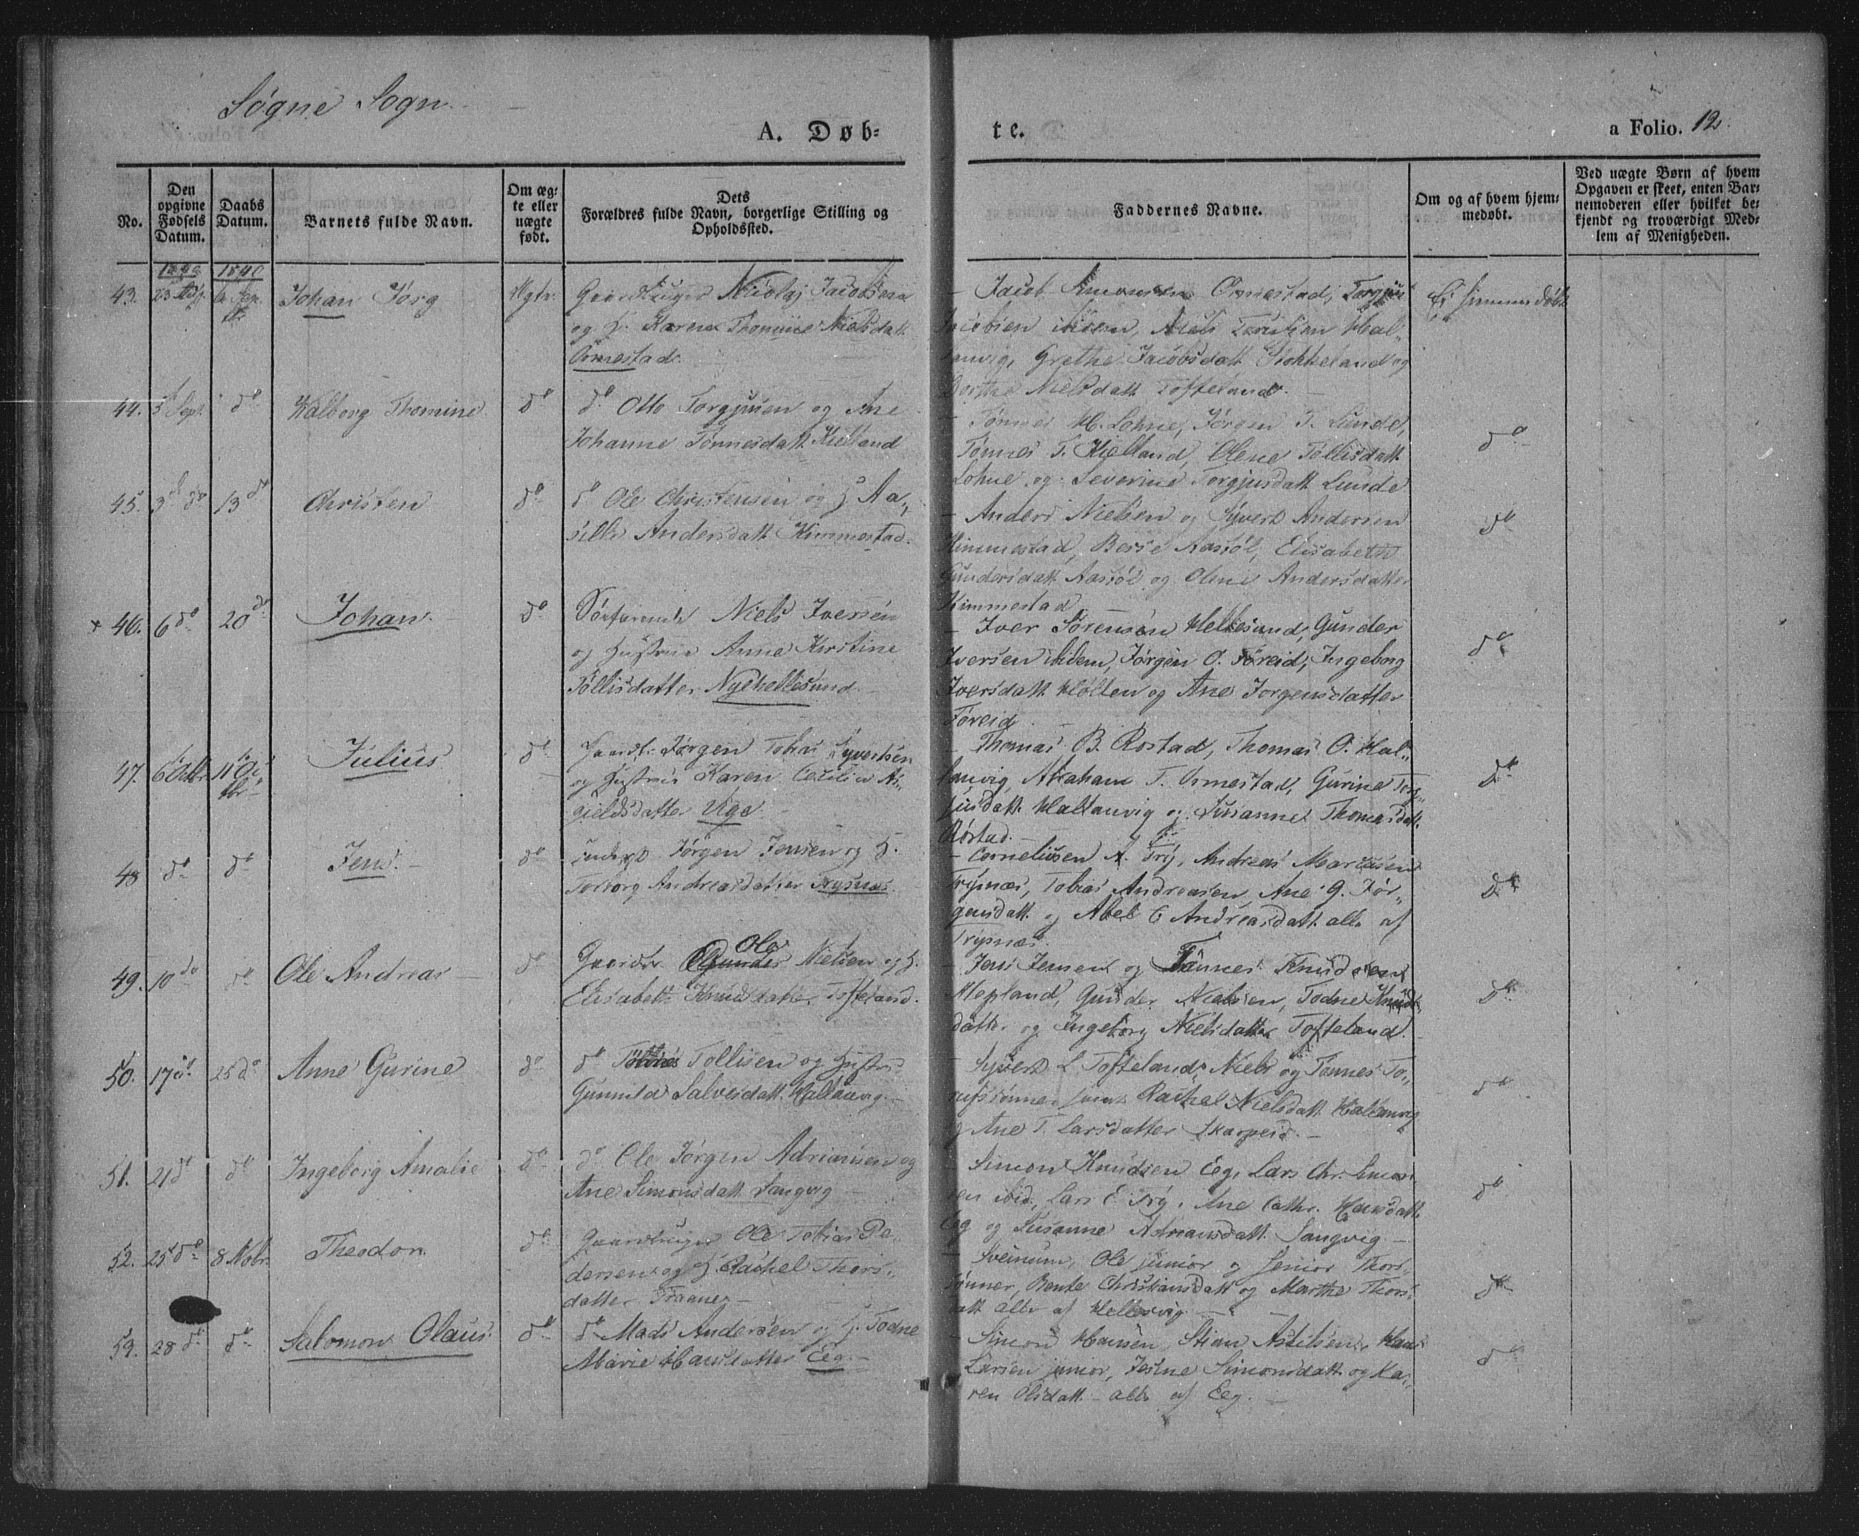 Søgne Sogn
A. Døb-
te.
a Folio. 12.
No.
Den opgivne Fødsels Datum.
Daabs Datum.
Barnets fulde Navn.
Om ægte eller uægte født.
Dets Forældres fulde Navn, borgerlige Stilling og Opholdssted.
Faddernes Navne.
Om og af hvem hjemmedøbt.
Ved uægte Børn af hvem Opgaven er skeet, enten Barnemoderen eller hvilket bekjendt og troværdigt Medlem af Menigheden.
1840 1840
43. Johan Jørg Ægte Gaardbruger Nicolaj Jacobsen
og H. Karen Thomine Nielsdatt
Ormestad
Jacob Simonsen Ormestad, Torgjus
Jacobsen ibidem, Niels
Grethe Jacobsdatt Stokkeland og
Berthe Nielsdatt Tofteland.
44. 3 Sept. do Walborg Thomine do do Otto Torgjusen og Ane
Johanne Tønnesdatt Kielland
Tønnes H. Lohne, Jørgen T. Lunde,
Tønnes T. Kielland, Olene Tollisdatt
Lohne og Severine Torgjusdatt Lunde
do
45. 3 do 13 do Christen do do Ole Christensen og H. Aa-
sille Andersdatt Kimmestad.
Anders Nielsen og Syvert Andersen
Kimmestad, Berse Aasiøl, Elisabeth
Gundersdatt Aasiøl og Olene Andersdatter
Kimmestad
do
46. 6 do 20 do Johan do Søfarende Niels Iversen
og Hustrue Anne Kirstine
Tollisdatter Nyehellesund
Iver Sørensen Hellesund, Gunder
Iversen ibidem, Jørgen O. Føreid, Ingeborg
Iversdatt Holten og Ane Jorgensdatter
Føreid
do
47. 6 Octbr 11 Octbr Julius do Gaardb. Jørgen Tobias Syvertsen
og Hustrue Karen Cecilie As-
gieldsdatter Vige
Thomas B. Rostad, Thomas O. Hal-
lanvig Abraham T. Ormestad, Gurine Torg-
jusdatt Hallanvig og Susanne Thomasdatt
Røstad.
do
48 do do Jens do Jørgen Jensen og H.
Torborg Andreasdatter Trysnæs
Corneliusen A. Try, Andreas Marcussen
Trysnæs, Tobias Andreasen, Ane G. Jør-
gensdatt og Abel C Andreasdatt alle af
Trysnæs.
do
49. 10 do do Ole Andreas do Gaardbr Ole Nielsen og H.
Elisabeth Knudsdatter Tofteland.
Jens Jensen og Tønnes Knudsen
Mepland, Gunder Nielsen, Todne Knuds-
datter og Ingeborg Nielsdatter Tofteland.
do
50. 17 do 25 do Anne Gurine do do Tollisen og Hustr
Gunnild Salvesdatt Hallanvig
Syvert L Tofteland, Niels og Tønnes To-
samt Rachel Nielsdatt Hallanvig
og Ane T. Larsdatter Skarpeid.
do
51. 21 do do Ingeborg Amalie do do Ole Jørgen Adriansen og
Ane Simonsdatt Langvig
Simon Knudsen Eeg, Lars Chr. Simon-
sen ibid, Lars E Try, Ane Cathr. Hansdatt
Eeg og Susanne Adriansdatt Langvig
do
52. 25 do 8 Nvbr. Theodor do Gaardbruger Ole Tobias Pe-
dersen og H. Rachel Thors-
datter
Sveinum, Ole junior og Senior Thors-
sønner, Bente Christiansdatt og Marthe Thors-
datt alle af Hellesvig
do
53. 28 do do Salomon Olaus do do Mads Andersen og H. Todne
Marie Hansdatter Eeg
Simon Hansen, Stian Askilsen, Hans
Larsen junior, Josine Simonsdatt og Ka-
ren Olsdatt alle af Eeg.
do